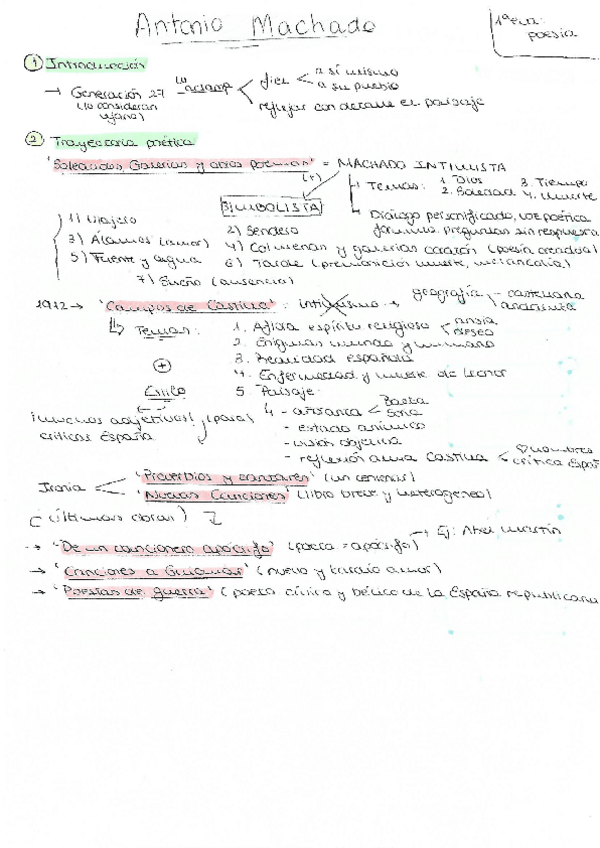 Antonio Machado
1ª eva:
poesía
1 Introducción
→ Generación 27 lo aclamp fiel a sí mismo
(lo consideran a su pueblo
lejano) reflejar con detalle el paisaje
2 Trayectoria poética
'Soledades Galerías y otros poemas' = MACHADO INTIMISTA
(+)
SIMBOLISTA
Temas: 1. Dios 3. Tiempo
2. Soledad 4. muerte
Diálogo personificado, voz poética
formula preguntas sin respuesta
1) Viajero 2) Sendero
3) Álamos (amor) 4) Colmenas y galerías corazón (poesía creadora)
5) Fuente y agua 6) Tarde (premonición muerte, melancolía)
7) Sueño (ausencia)
1912 → 'Campos de Castilla': intimismo → geografía - castellana
andaluza
Temas: 1. Afida espíritu religioso ansia
deseo
2. Enigmas mundo y humano
3. Realidad española
4. Enfermedad y muerte de Leonor
+ Estilo 5. Paisaje:
¡muchos adjetivos! (para) - añoranza Baeza
Soria
criticar España - estado anímico
- visión objetiva
- reflexión alma Castilla hombres
crítica España
Ironía 'Proverbios y cantares' (un centenar)
'Nuevas Canciones' (libro breve y heterogéneo)
(últimas obras)
→ 'De un cancionero apócrifo' (poeta = apócrifo) → Ej: Abel Martín
→ 'Canciones a Guiomar' (nuevo y tardío amor)
→ 'Poesías de guerra' (poeta cívico y bélico de la España republicana